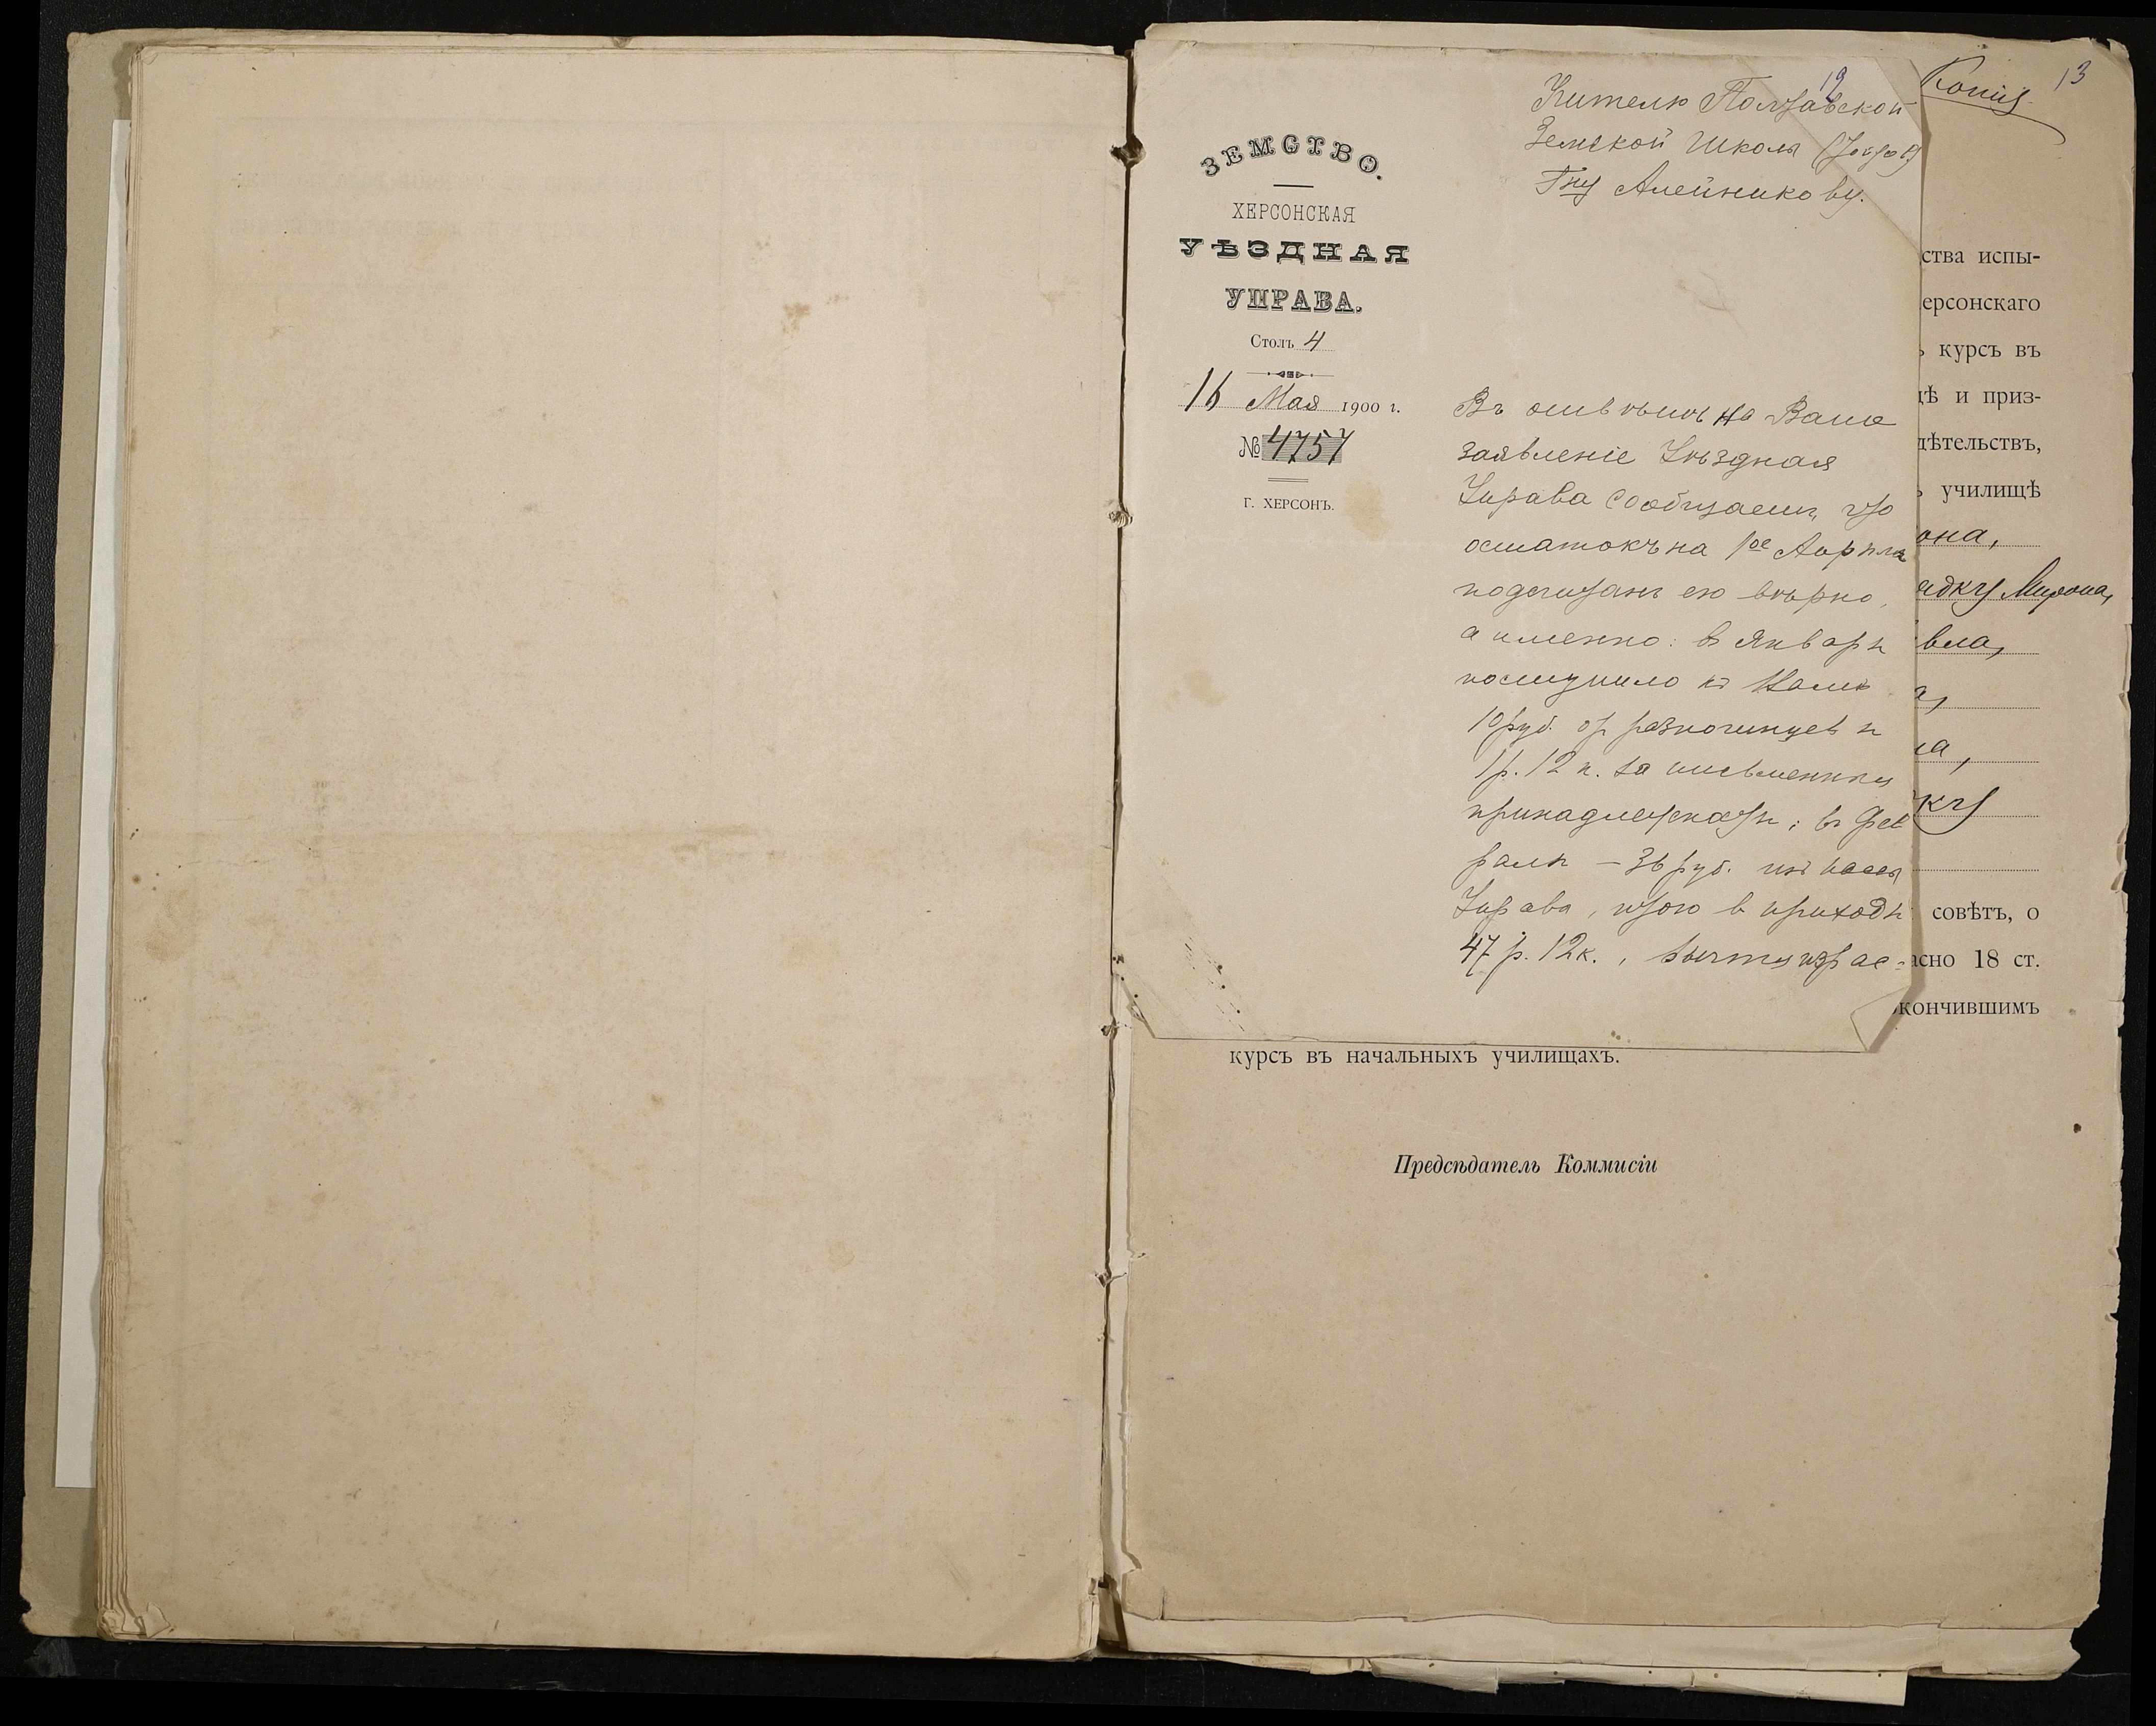 12
Учителю Полтавской
Земской Школы
Гну Алейникову.
ЗЕМСТВО.
ХЕРСОНСКАЯ
УѢЗДНАЯ
УПРАВА.
Столъ 4
16 Мая 1900 г.
№ 4757
Г. ХЕРСОНЪ.
Въ отвѣтъ на Ваше
заявленіе Уѣздная
Управа сообщаетъ, что
остатокъ на 1ое Апрѣля
подсчитанъ ею вѣрно,
а именно: въ Январѣ
поступило къ Вамъ
10 руб. от разночинцев и
1 р. 12 к. за письменныя
принадлежности; въ Фев
ралѣ – 36 руб. изъ кассы
Управы, итого в приходѣ
47 р. 12 к., вычтя израс-
Копія
13
ства испы-
ерсонскаго
ъ курсъ въ
дѣ и приз-
дѣтельствъ,
ъ училищѣ
она,
Мирона,
вла,
а,
ка,
ку
совѣтъ, о
асно 18 ст.
окончившимъ
курсъ въ начальныхъ училищахъ.
Предсѣдатель Коммисіи